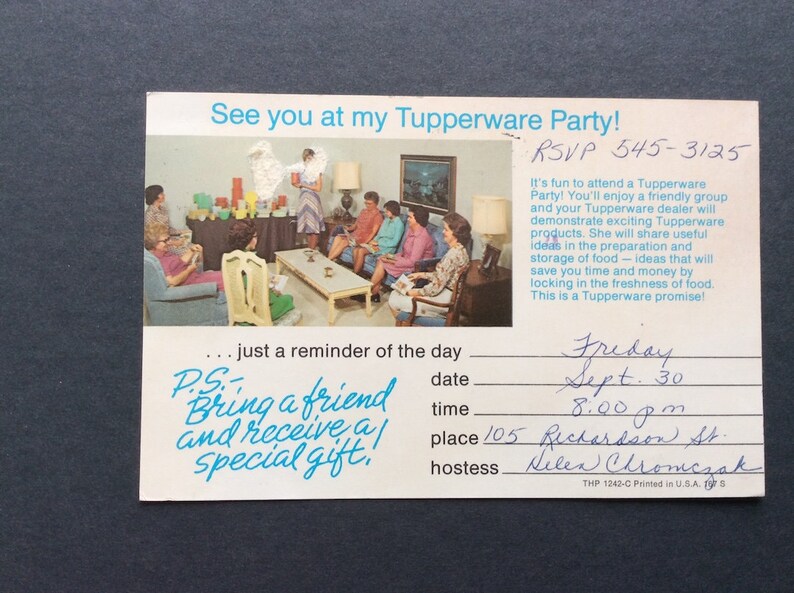 See you at my Tupperware Party!
RSVP 545-3125
It's fun to attend a Tupperware
Party! You'll enjoy a friendly group
and your Tupperware dealer will
demonstrate exciting Tupperware
products. She will share useful
ideas in the preparation and
storage of food — ideas that will
save you time and money by
locking in the freshness of food.
This is a Tupperware promise!
. . . just a reminder of the day Friday
date Sept. 30
time 8:00 pm
place 105 Richardson St.
hostess Helen Chromczak
P.S.-
Bring a friend
and receive a
special gift!
THP 1242-C Printed in U.S.A. 767 S